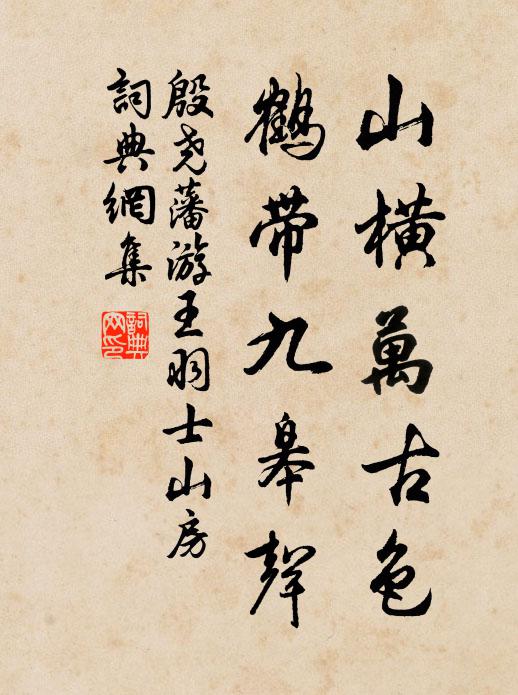 山横萬古色
鶴帶九皋聲
殷尧藩游王羽士山房
詞典網集
詞典網印